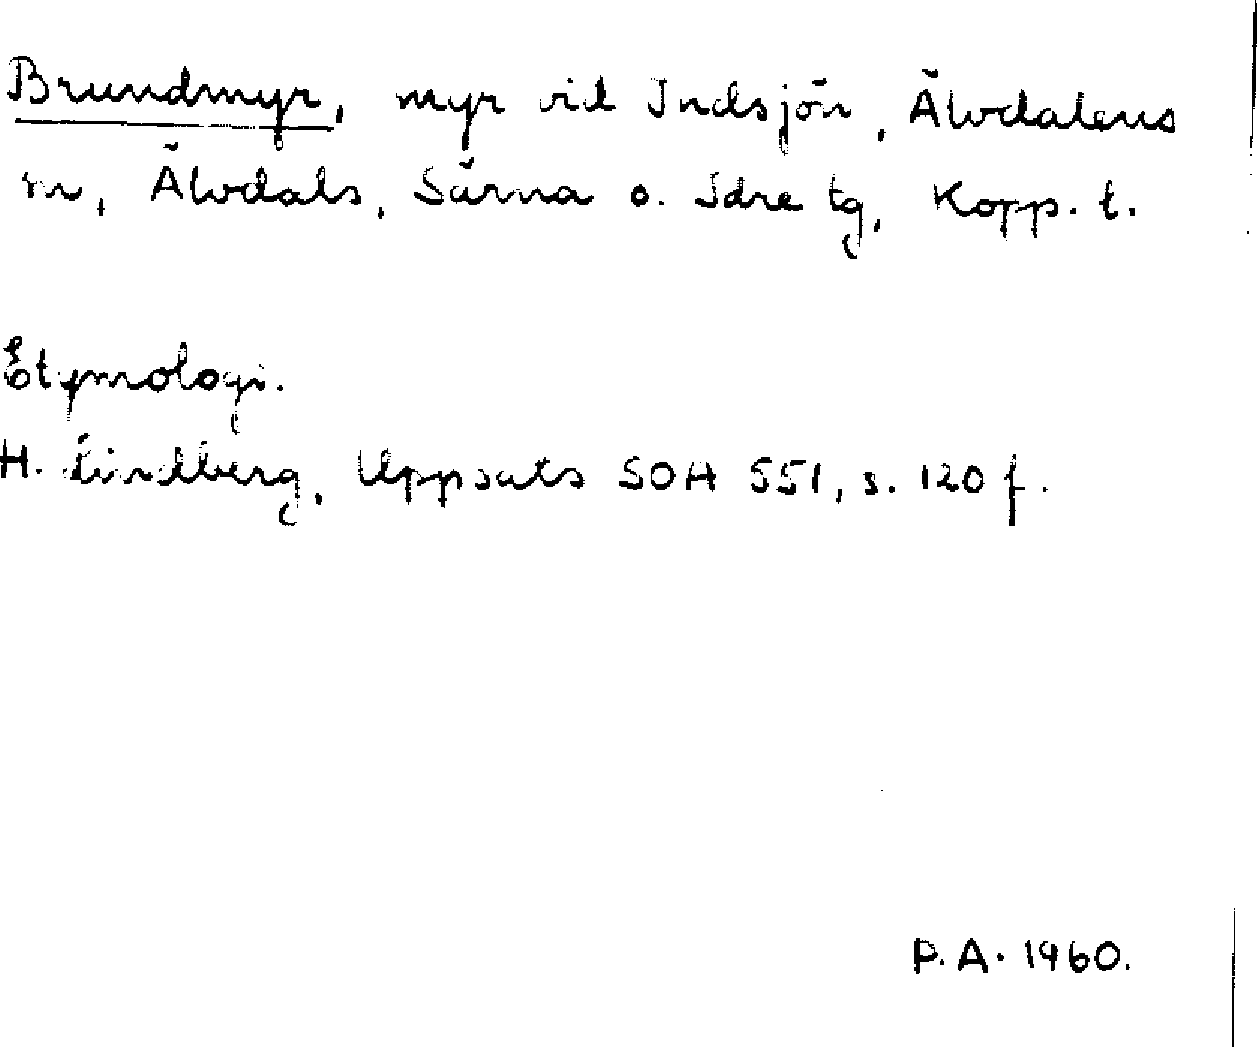 Brundmyr, myr vid Indsjön, Älvdalens
m, Älvdals, Särna o. Idre tg, Kopp. l.
Etymologi.
H. Lindberg, Uppsats SOH 551, s. 120 f.
P.A. 1960.